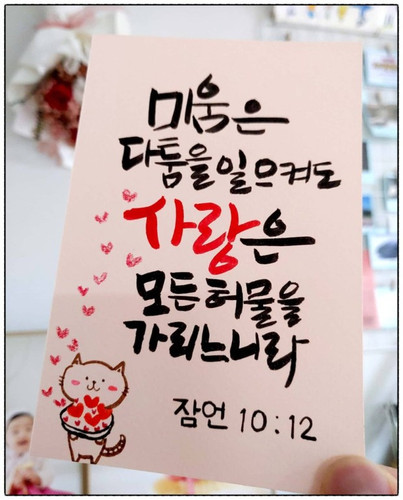 미움은
다툼을 일으켜도
사랑은
모든 허물을
가리느니라
잠언 10:12